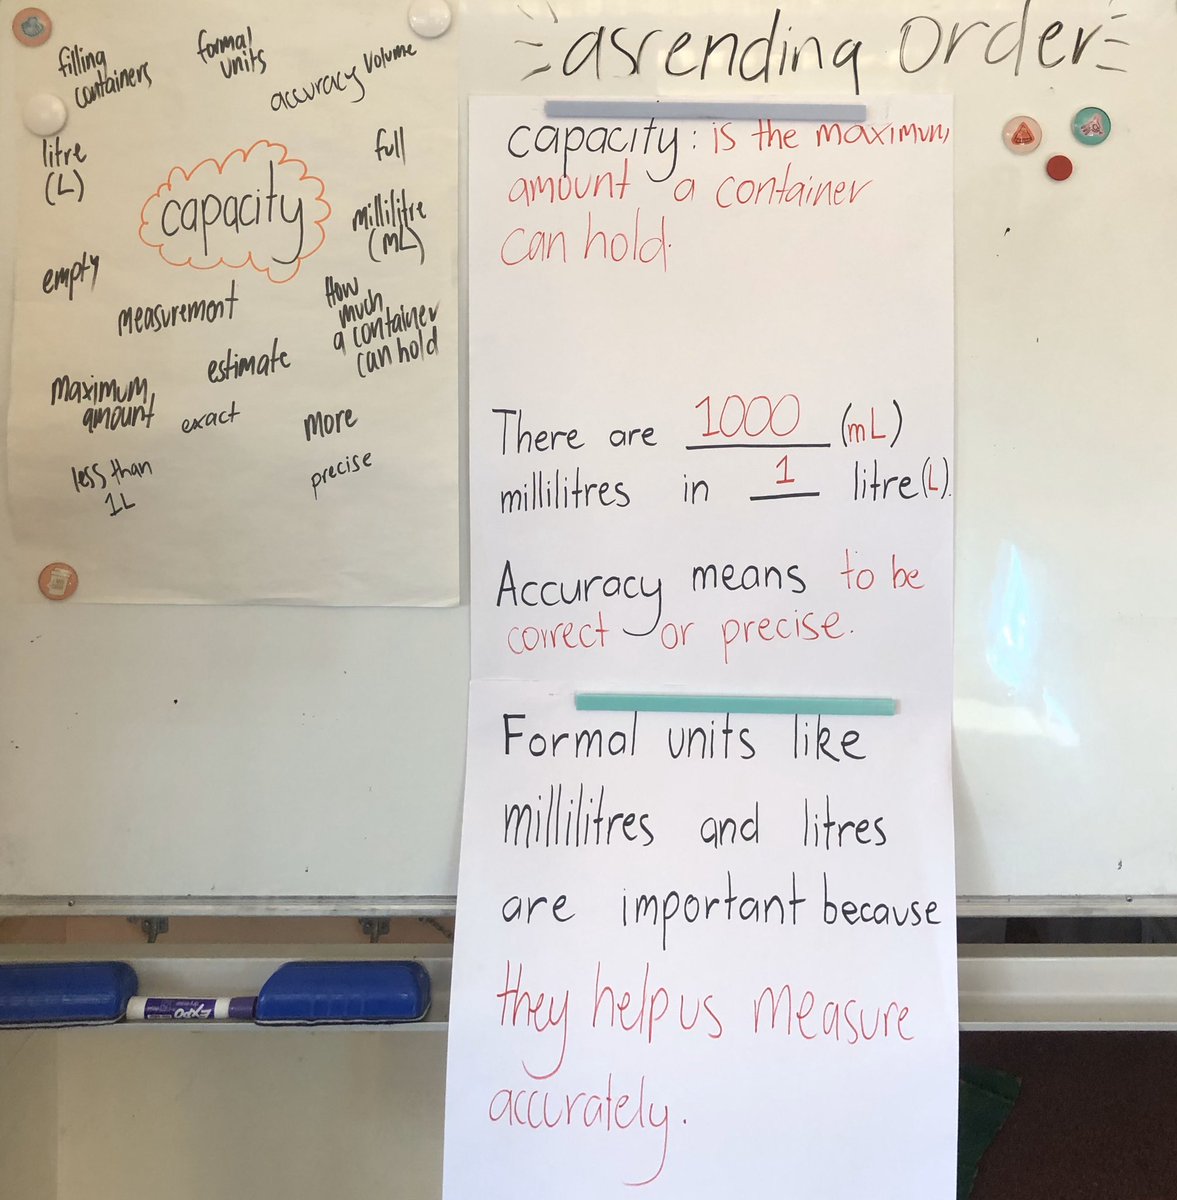 filling
containers
formal
units
accuracy
volume
litre
(L)
full
capacity
millilitre
(mL)
empty
measurement
How
much
a container
can hold
estimate
maximum
amount
exact
more
less than
1L
precise
ascending order
capacity: is the maximum
amount a container
can hold.
There are 1000 (mL)
millilitres in 1 litre (L).
Accuracy means to be
correct or precise.
Formal units like
millilitres and litres
are important because
they help us measure
accurately.
EXPO